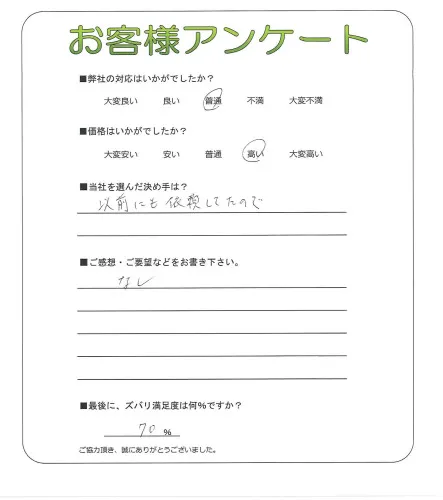 お客様アンケート
■弊社の対応はいかがでしたか？
大変良い 良い 普通 不満 大変不満
■価格はいかがでしたか？
大変安い 安い 普通 高い 大変高い
■当社を選んだ決め手は？
以前にも依頼してたので
■ご感想・ご要望などをお書き下さい。
なし
■最後に、ズバリ満足度は何%ですか？
70 %
ご協力頂き、誠にありがとうございました。